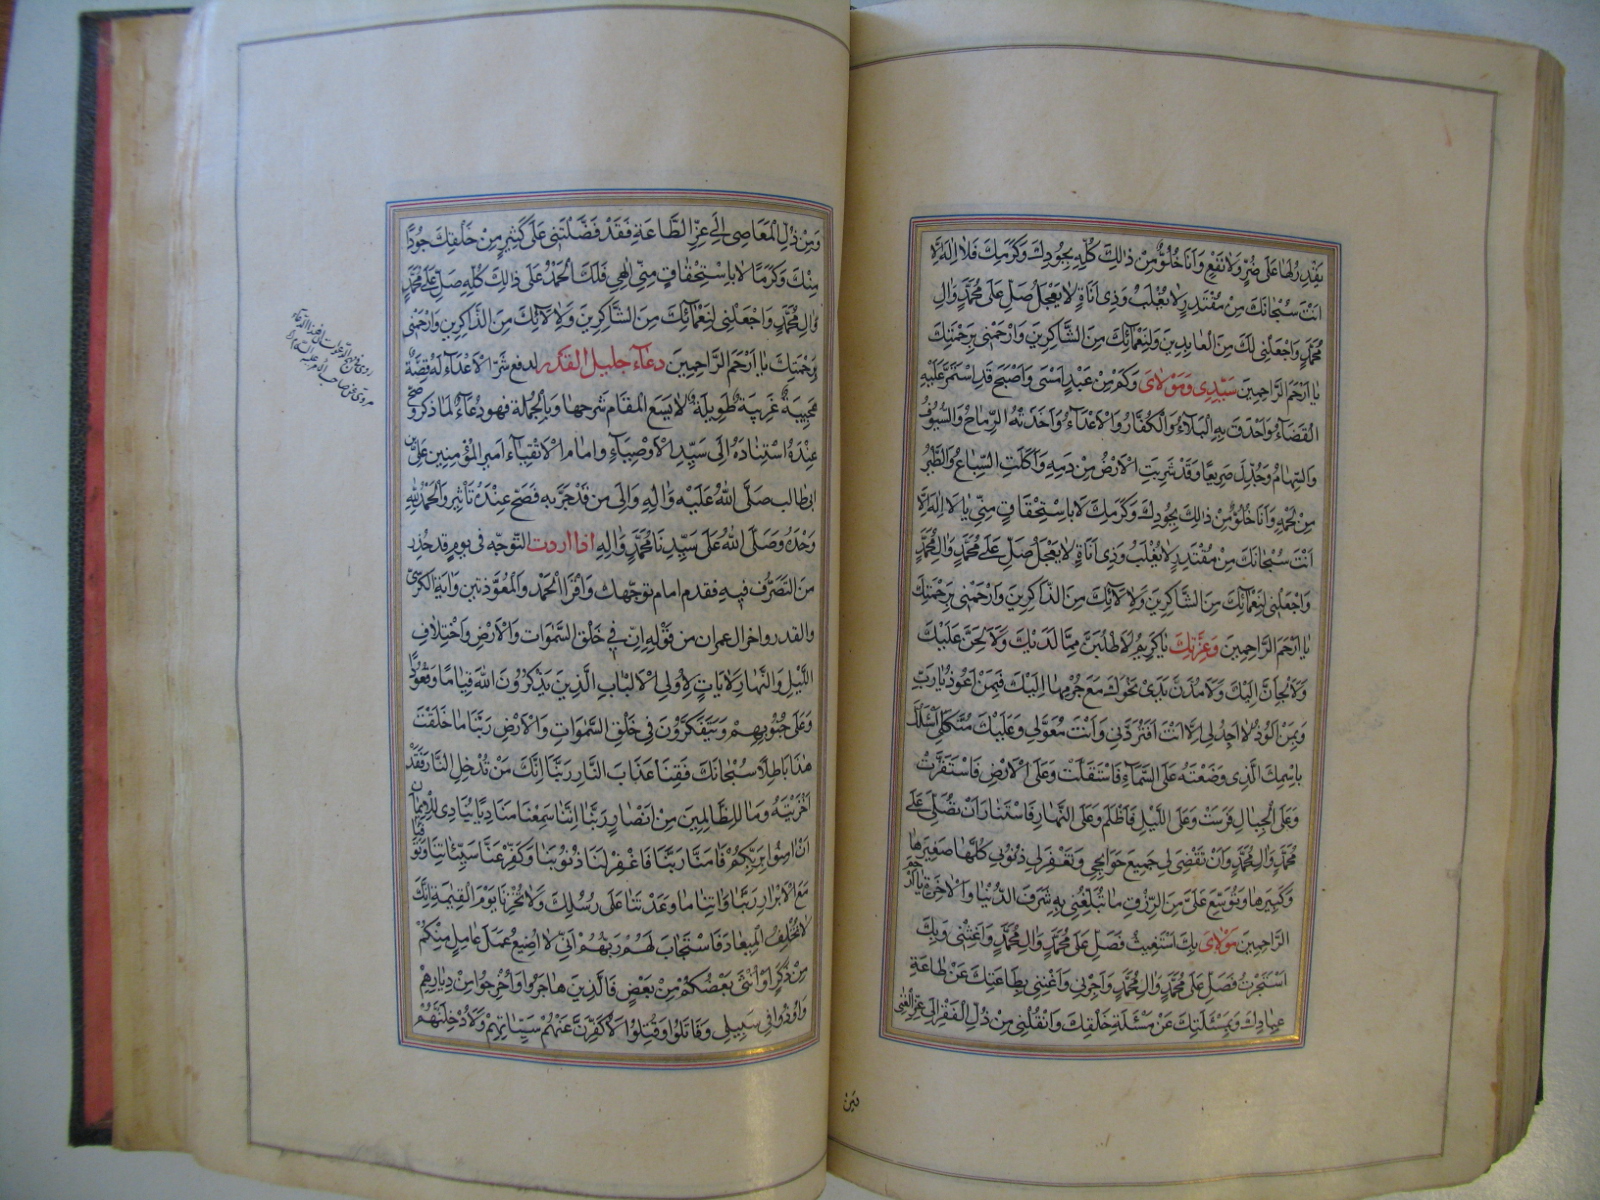 يقدر لها على ضر ولا نفع وانا خلو من ذالك كله بجودك وكرمك فلا اله الا
انت سبحانك من مقتدر لا يغلب وذي اناة لا يعجل صل على محمد وال
محمد واجعلني لك من العابدين ولنعمائك من الشاكرين وارحمني برحمتك
يا ارحم الراحمين سيدي ومولاي وكم من عبد امسى واصبح قد استمر عليه
القضاء واحدق به البلاء والكفار والاعداء واخذته الرماح والسيوف
والسهام وجدل صريعا وقد شربت الارض من دمه واكلت السباع والطير
من لحمه وانا خلو من ذالك بجودك وكرمك لا باستحقاق مني يا لا اله الا
انت سبحانك من مقتدر لا يغلب وذي اناة لا يعجل صل على محمد وال محمد
واجعلني لنعمائك من الشاكرين ولالائك من الذاكرين وارحمني برحمتك
يا ارحم الراحمين وعزتك يا كريم لاطلبن مما لديك ولالحن عليك
ولالجان اليك ولامدن يدي نحوك مع جرمها اليك فبمن اعوذ يا رب
وبمن الوذ لا احد لي الا انت افتردني وانت معولي وعليك متكلي اسئلك
باسمك الذي وضعته على السماء فاستقلت وعلى الارض فاستقرت
وعلى الجبال فرست وعلى الليل فاظلم وعلى النهار فاستنار ان تصلي على
محمد وال محمد وان تقضي لي جميع حوائجي وتغفر لي ذنوبي كلها صغيرها
وكبيرها وتوسع علي من الرزق ما تبلغني به شرف الدنيا والاخرة يا ارحم
الراحمين مولاي بك استغيث فصل على محمد وال محمد واغثني وبك
استجرت فصل على محمد وال محمد واجرني واغنني بطاعتك عن طاعة
عبادك وبمسئلتك عن مسئلة خلقك وانقلني من ذل الفقر الى عز الغنى
ومن ذل المعاصي الى عز الطاعة فقد فضلتني على كثير من خلقك جودا
منك وكرما لا باستحقاق مني الهي فلك الحمد على ذالك كله صل على محمد
وال محمد واجعلني لنعمائك من الشاكرين ولالائك من الذاكرين وارحمني
برحمتك يا ارحم الراحمين دعاء جليل القدر لدفع شر الاعداء له قصة
عجيبة غريبة طويلة لا يسع المقام شرحها وبالجملة فهو دعاء لما ذكر وصح
عنده استناده الى سيد الاوصياء وامام الاتقياء امير المؤمنين علي بن
ابي طالب صلى الله عليه واله والى من قد جربه فصح عنده تاثيره والحمد لله
وحده وصلى الله على سيدنا محمد واله اذا اردت التوجه في يوم قد حذر
من التصرف فيه فقدم امام توجهك واقرا الحمد والمعوذتين واية الكرسي
والقدر واخر ال عمران من قوله ان في خلق السموات والارض واختلاف
الليل والنهار لايات لاولي الالباب الذين يذكرون الله قياما وقعودا
وعلى جنوبهم ويتفكرون في خلق السموات والارض ربنا ما خلقت
هذا باطلا سبحانك فقنا عذاب النار ربنا انك من تدخل النار فقد
اخزيته وما للظالمين من انصار ربنا اننا سمعنا مناديا ينادي للايمان
ان امنوا بربكم فامنا ربنا فاغفر لنا ذنوبنا وكفر عنا سيئاتنا وتوفنا
مع الابرار ربنا واتنا ما وعدتنا على رسلك ولا تخزنا يوم القيمة انك
لا تخلف الميعاد فاستجاب لهم ربهم اني لا اضيع عمل عامل منكم
من ذكر او انثى بعضكم من بعض فالذين هاجروا واخرجوا من ديارهم
واوذوا في سبيلي وقاتلوا وقتلوا لاكفرن عنهم سيئاتهم ولادخلنهم